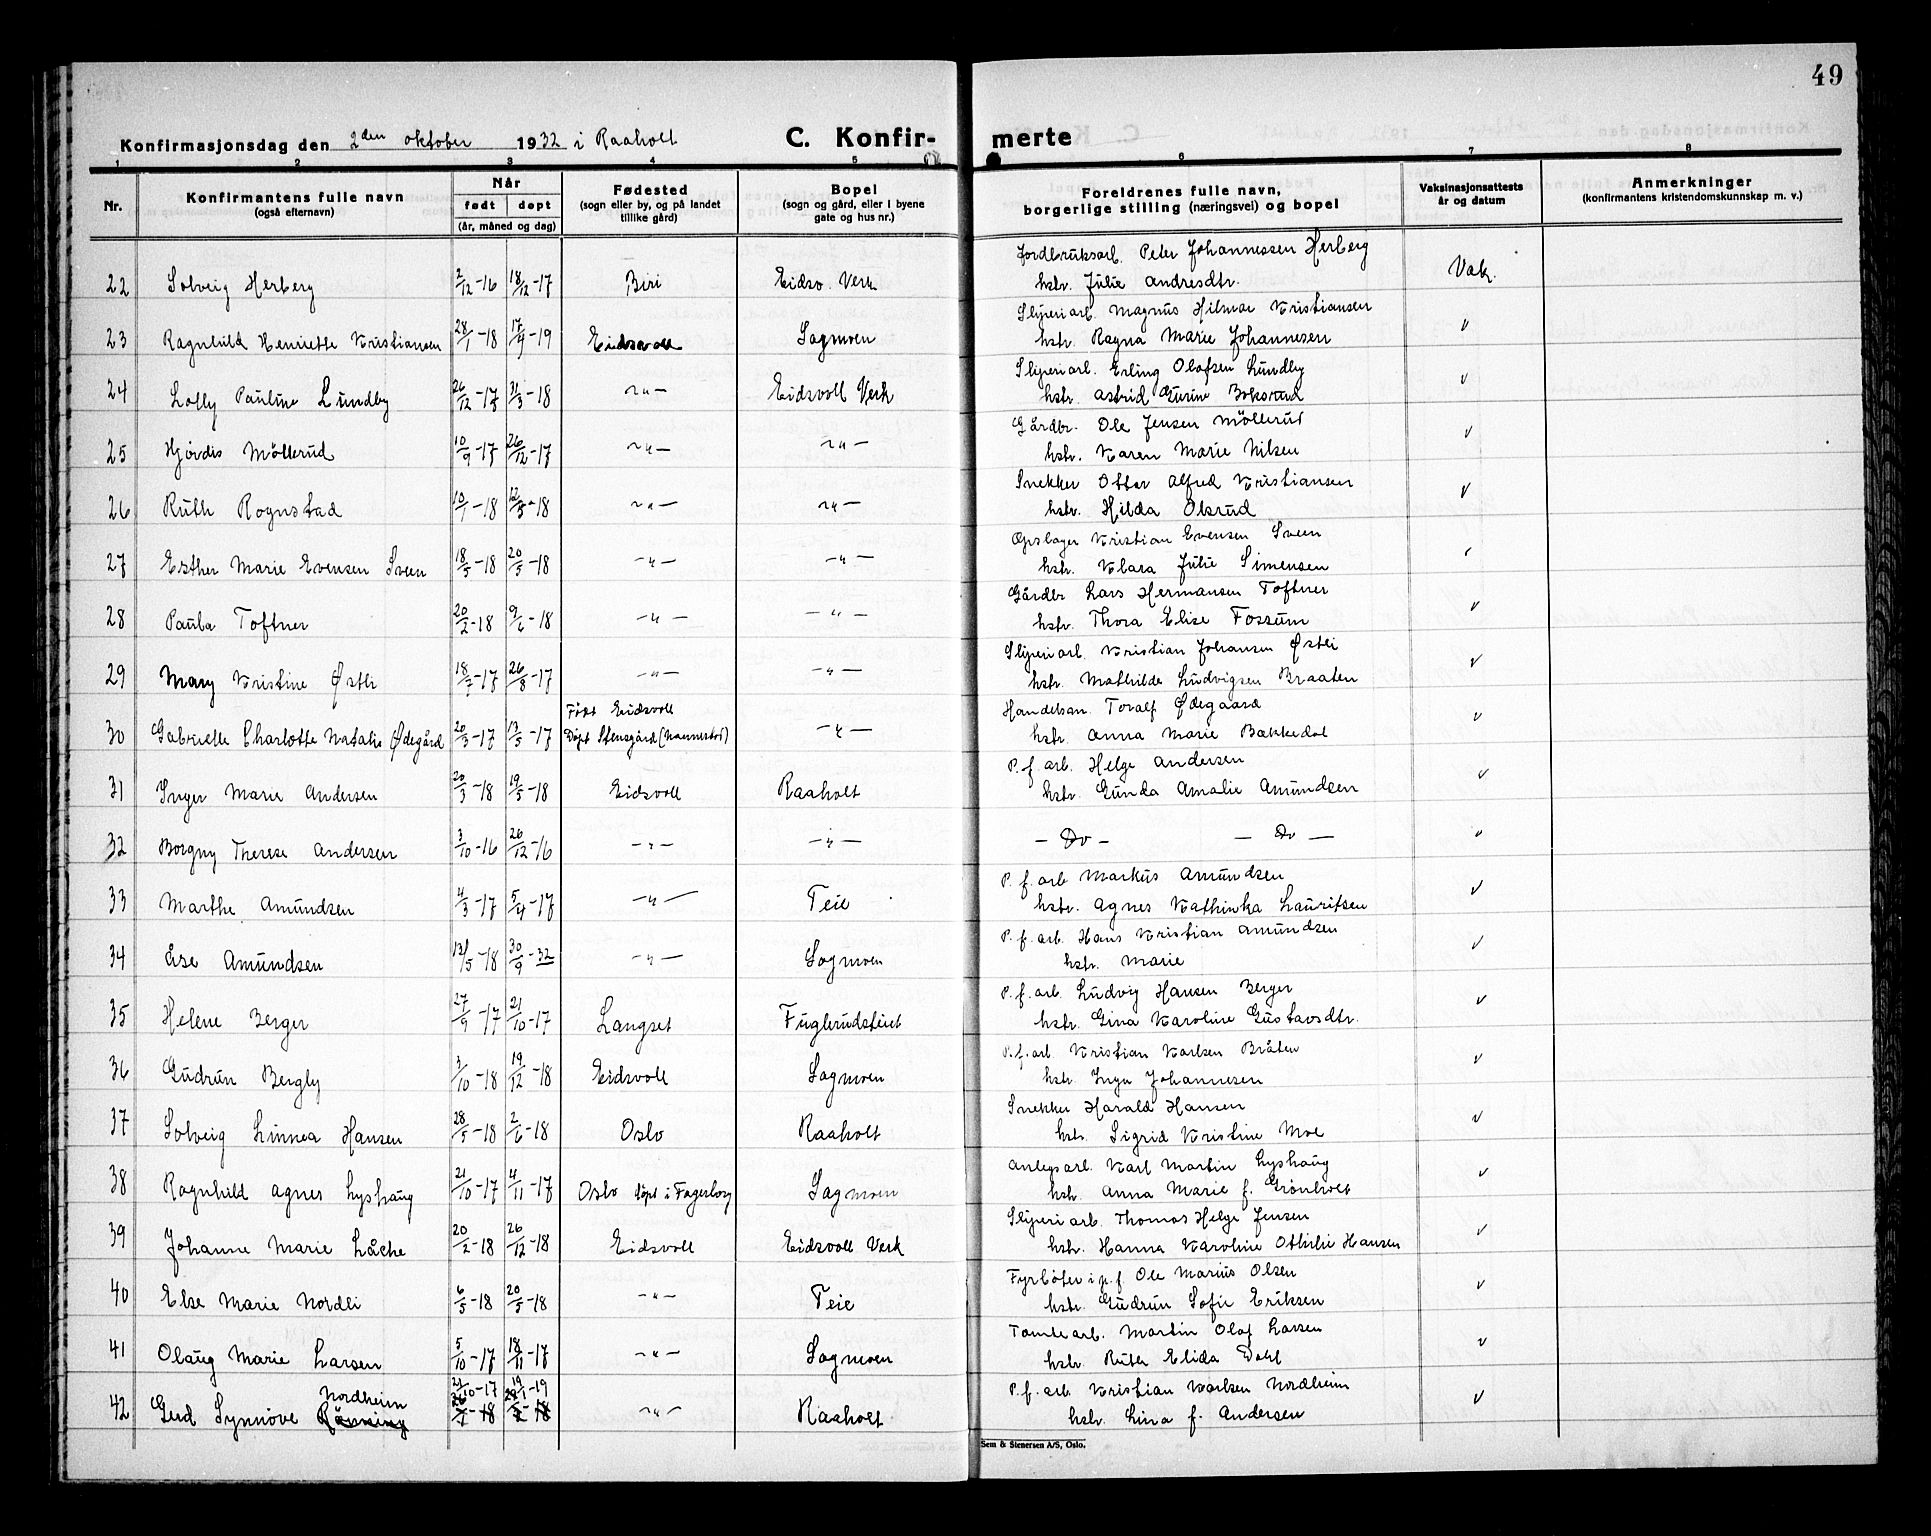 49
Konfirmasjonsdag den 2den oktober 1932 i Raaholt C. Konfir- merte
1 2 3 4 5 6 7 8
Nr. Konfirmantens fulle navn (også efternavn) Når født døpt (år, måned og dag) Fødested (sogn eller by, og på landet tillike gård) Bopel (sogn og gård, eller i byene gate og hus nr.) Foreldrenes fulle navn, borgerlige stilling (næringsvei) og bopel Vaksinasjonsattests år og datum Anmerkninger (konfirmantens kristendomskunnskap m. v.)
Jordbruksarb. Peter Johannessen Herberg
22 Solveig Herberg 2/12-16 18/12-17 Biri Eidsv. Verk hstr. Julie Andresdtr. Vak.
Sliperiarb. Magnus Hilmar Kristiansen
23 Ragnhild Henriette Kristiansen 28/1-18 17/4-19 Eidsvoll Sagmoen hstr. Ragna Marie Johannesen v
Sliperiarb. Erling Olafsen Lundby
24 Lolly Pauline Lundby 26/12-17 31/3-18 -"- Eidsvoll Verk hstr. Astrid Gurine Boksrud v
Gårdbr. Ole Jensen Möllerud
25 Hjördis Möllerud 10/9-17 26/12-17 -"- -"- hstr. Karen Marie Nilsen v
Snekker Ottar Alfred Kristiansen
26 Ruth Rognstad 10/1-18 12/5-18 -"- -"- hstr. Hilda Olsrud v
Opslager Kristian Evensen Sveen
27 Esther Marie Evensen Sveen 18/3-18 20/5-18 -"- -"- hstr. Klara Julie Simensen v
Gårdbr Lars Hermansen Toftner
28 Paula Toftner 20/2-18 9/6-18 -"- -"- hstr. Thora Elise Fossum v
Sliperiarb. Kristian Johansen Østli
29 Mary Kristine Østli 18/7-17 26/8-17 -"- -"- hstr. Mathilde Ludvigsen Braaten v
Født Eidsvoll Handelsm. Toralf Ødegaard
30 Gabrielle Charlotte Natalie Ødegård 20/3-17 13/5-17 Døpt Stensgård (Mannestad) -"- hstr. Anna Marie Bakkedal v
P. f. arb. Helge Andersen
31 Inger Marie Andersen 20/3-18 19/5-18 Eidsvoll Raaholt hstr. Gunda Amalie Amundsen v
32 Borgny Therese Andersen 3/10-16 26/12-16 -"- -"- - Do - - Do - v
P. f. arb Markus Amundsen
33 Marthe Amundsen 4/3-17 5/4-17 -"- Teie hstr. Agnes Kathinka Lauritsen v
P. f. arb. Hans Kristian Amundsen
34 Else Amundsen 12/5-18 30/9-32 -"- Sagmoen hstr. Marie v
P. f. arb. Ludvig Hansen Berger
35 Helene Berger 27/9-17 21/10-17 Langset Fuglerudsteiet hstr. Gina Karoline Gustavsdtr. v
P. f. arb Kristian Karlsen Bråten
36 Gudrun Bergly 3/10-18 19/12-18 Eidsvoll Sagmoen hstr. Inga Johannesen v
Snekker Harald Hansen
37 Solveig Linnea Hansen 28/5-18 2/6-18 Oslo Raaholt hstr. Sigrid Kristine Moe v
Anlegsarb. Karl Martin Lyshaug
38 Ragnhild Agnes Lyshaug 21/10-17 4/11-17 Oslo døpt i Fagerborg Sagmoen hstr. Anna Marie f. Grönhvet v
Sliperiarb. Thomas Helge Jensen
39 Johanne Marie Låche 20/2-18 26/12-18 Eidsvoll Eidsvoll Verk hstr. Hanna Karoline Othilie Hansen v
Fyrbøter i p. f. Ole Marius Olsen
40 Else Marie Nordli 6/5-18 20/5-18 -"- Teie hstr. Gudrun Sofie Eriksen v
Tomtearb. Martin Olaf Larsen
41 Olaug Marie Larsen 5/10-17 18/11-17 -"- Sagmoen hstr Ruth Elida Dahl v
Nordheim 21/10-17 19/1-19 P. f. arb Kristian Karlsen Nordheim
42 Gerd Synnöve Rönning -18 -18 -"- Raaholt hstr. Lina f. Andersen v
Sem & Stenersen A/S, Oslo.